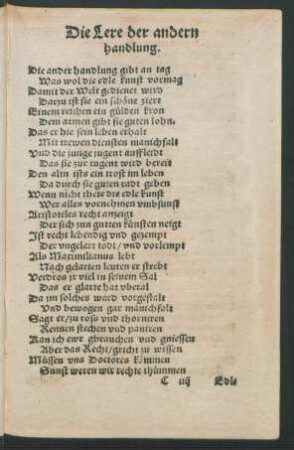 Die Lere der andern
handlung.
Die ander handlung gibt an tag
Was wol die edle kunst vormag
Damit der Welt gedienet wird
Darzu ist sie ein schöne zierd
Einem reichen ein gülden kron
Dem armen gibt sie guten lohn,
Das er hie sein leben erhalt
Mit trewen diensten manichfalt
Vnd die junge jugent aufferzeit
Das sie zur tugent wird bereit
Den altn ists ein trost im leben
Da durch sie guten radt geben
Wenn nicht there die edle kunst
Wer alles vornehmen vmbsunst
Aristoteles recht anzeigt
Der sich zun gutten künsten neigt
Ist recht lebendig vnd gezempt
Der vngelart todt/ vnd vorlempt
Als Maximilianus lebt
Nach gelarten leuten er strebt
Verdros jr viel in seinem Sal
Das er glarte hat vberal
Da jm solches ward vorgestalt
Vnd bewogen gar manichfalt
Sagt er/ zu ross vnd thorniren
Rennen stechen vnd
Kan ich ewr gbrauchen vnd gniessen
Aber das Recht/ gricht zu wissen
Müssen vns Doctores kömmen
Sunst weren wir rechte thümmen
C iiij Edle